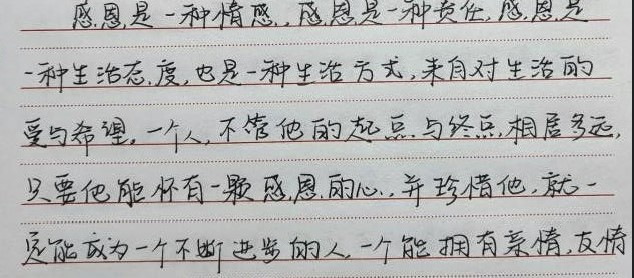 感恩是一种情感，感恩是一种责任，感恩是
一种生活态度，也是一种生活方式，来自对生活的
爱与希望。一个人，不管他的起点与终点，相居多远，
只要他能怀有一颗感恩的心，并珍惜他，就一
定能成为一个不断进步的人，一个能拥有亲情，友情